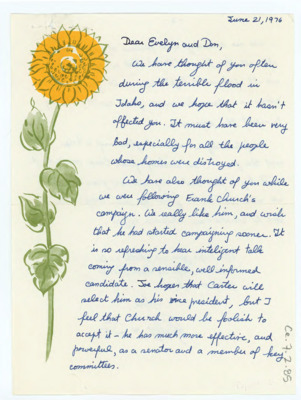 June 21, 1976
Dear Evelyn and Don,
We have thought of you often
during the terrible flood in
Idaho, and we hope that it hasn't
affected you. It must have been very
bad, especially for all the people
whose homes were distroyed.
We have also thought of you while
we were following Frank Church's
campaign. We really like him, and wish
that he had started campaigning sooner. It
is so refreshing to hear inteligent talk
coming from a sensible, well informed
candidate. Joe hopes that Carter will
select him as his vice president, but I
feel that Church would be foolish to
acept it - he has much more effective, and
powerful, as a senator and a member of key
committies.